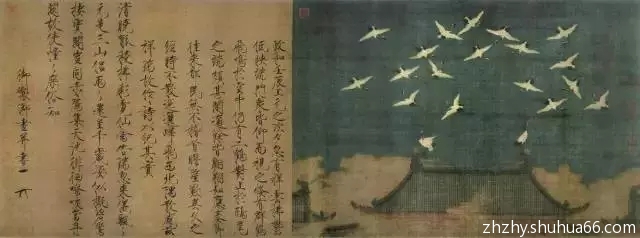 政和壬辰上元之次夕忽有祥雲拂鬱
低映端門衆皆仰而視之倏有群鶴
飛鳴於空中仍有二鶴對止於鴟尾
之端頗甚閑適餘皆翱翔如應奏節
往來都民無不稽首瞻望歎異久之
經時不散迤邐歸飛西北隅散感茲
祥瑞故作詩以紀其實
清曉觚稜拂彩霓仙禽告瑞忽來儀飄飄
元是三山侶兩兩還呈千歲姿似擬碧鸞
棲寶閣豈同赤鴈集天池徘徊嘹唳當丹
闕故使憧憧庶俗知
御製御畫并書
zhzhy.shuhua66.com